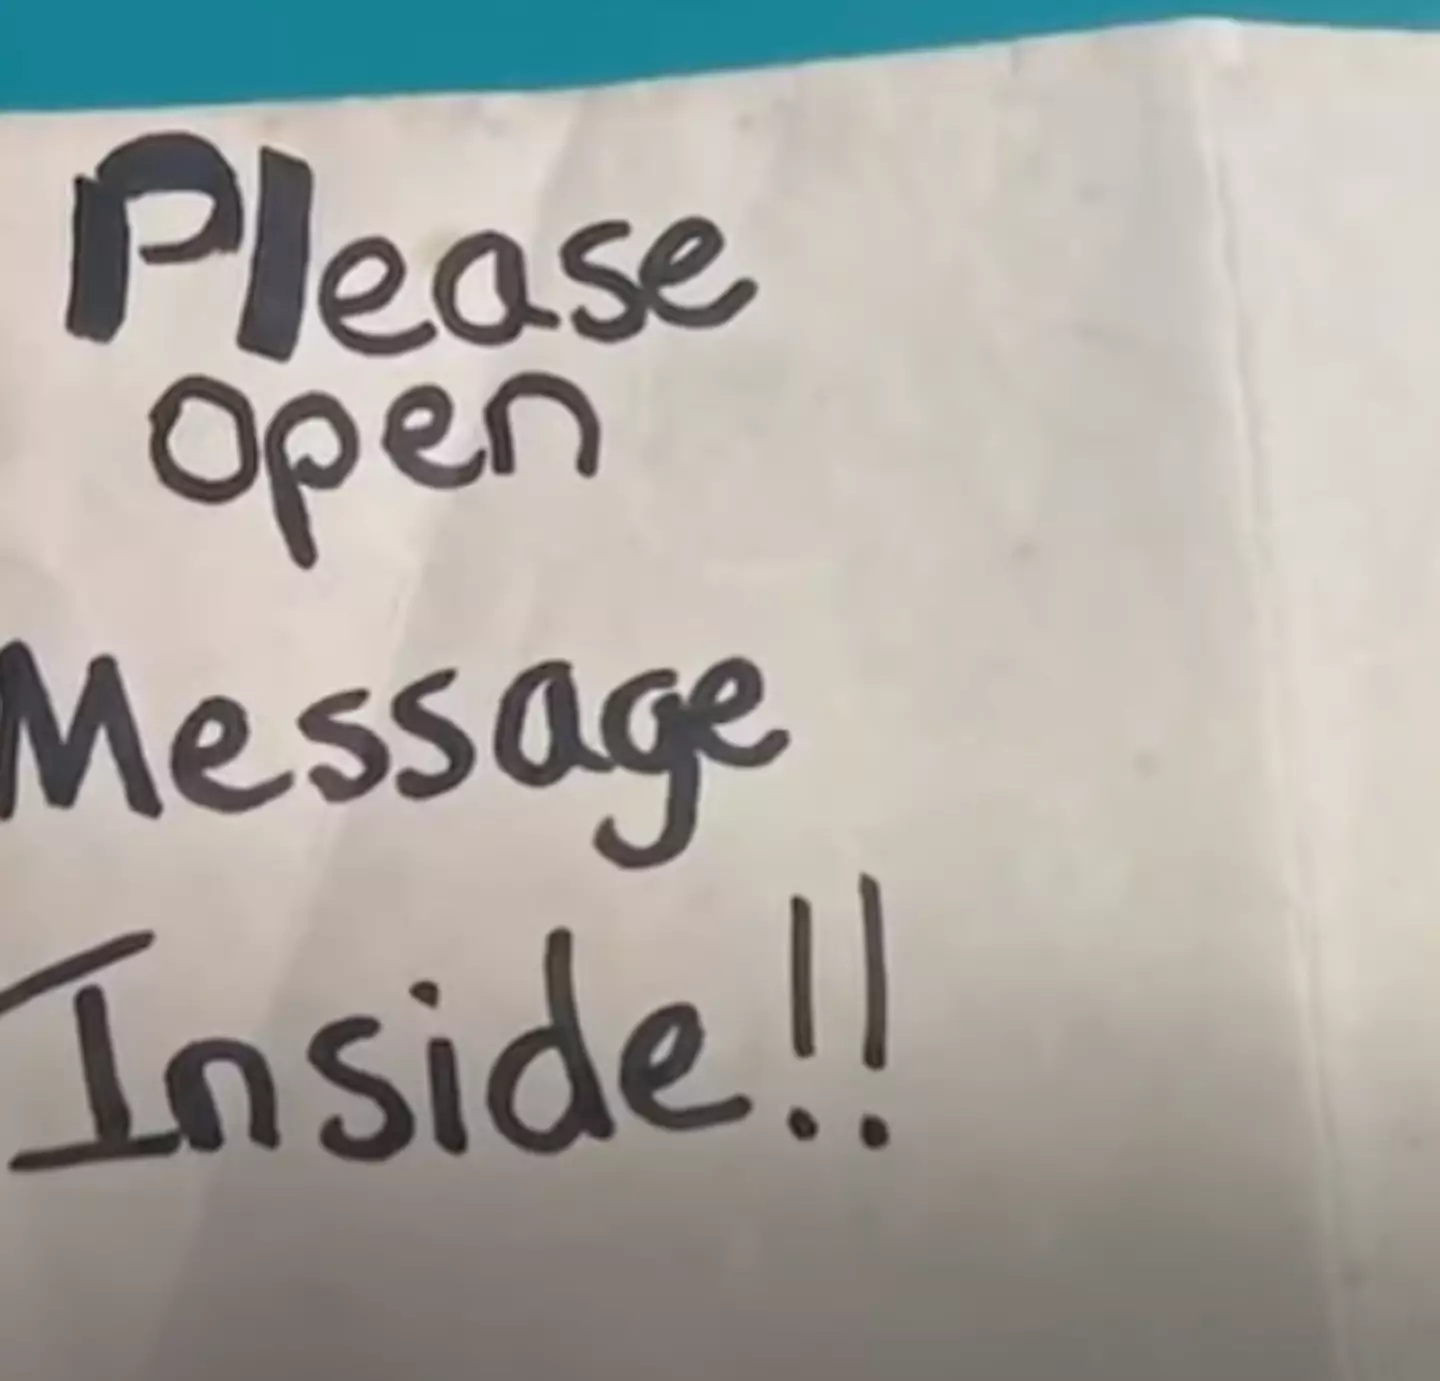 Please
open
Message
Inside!!